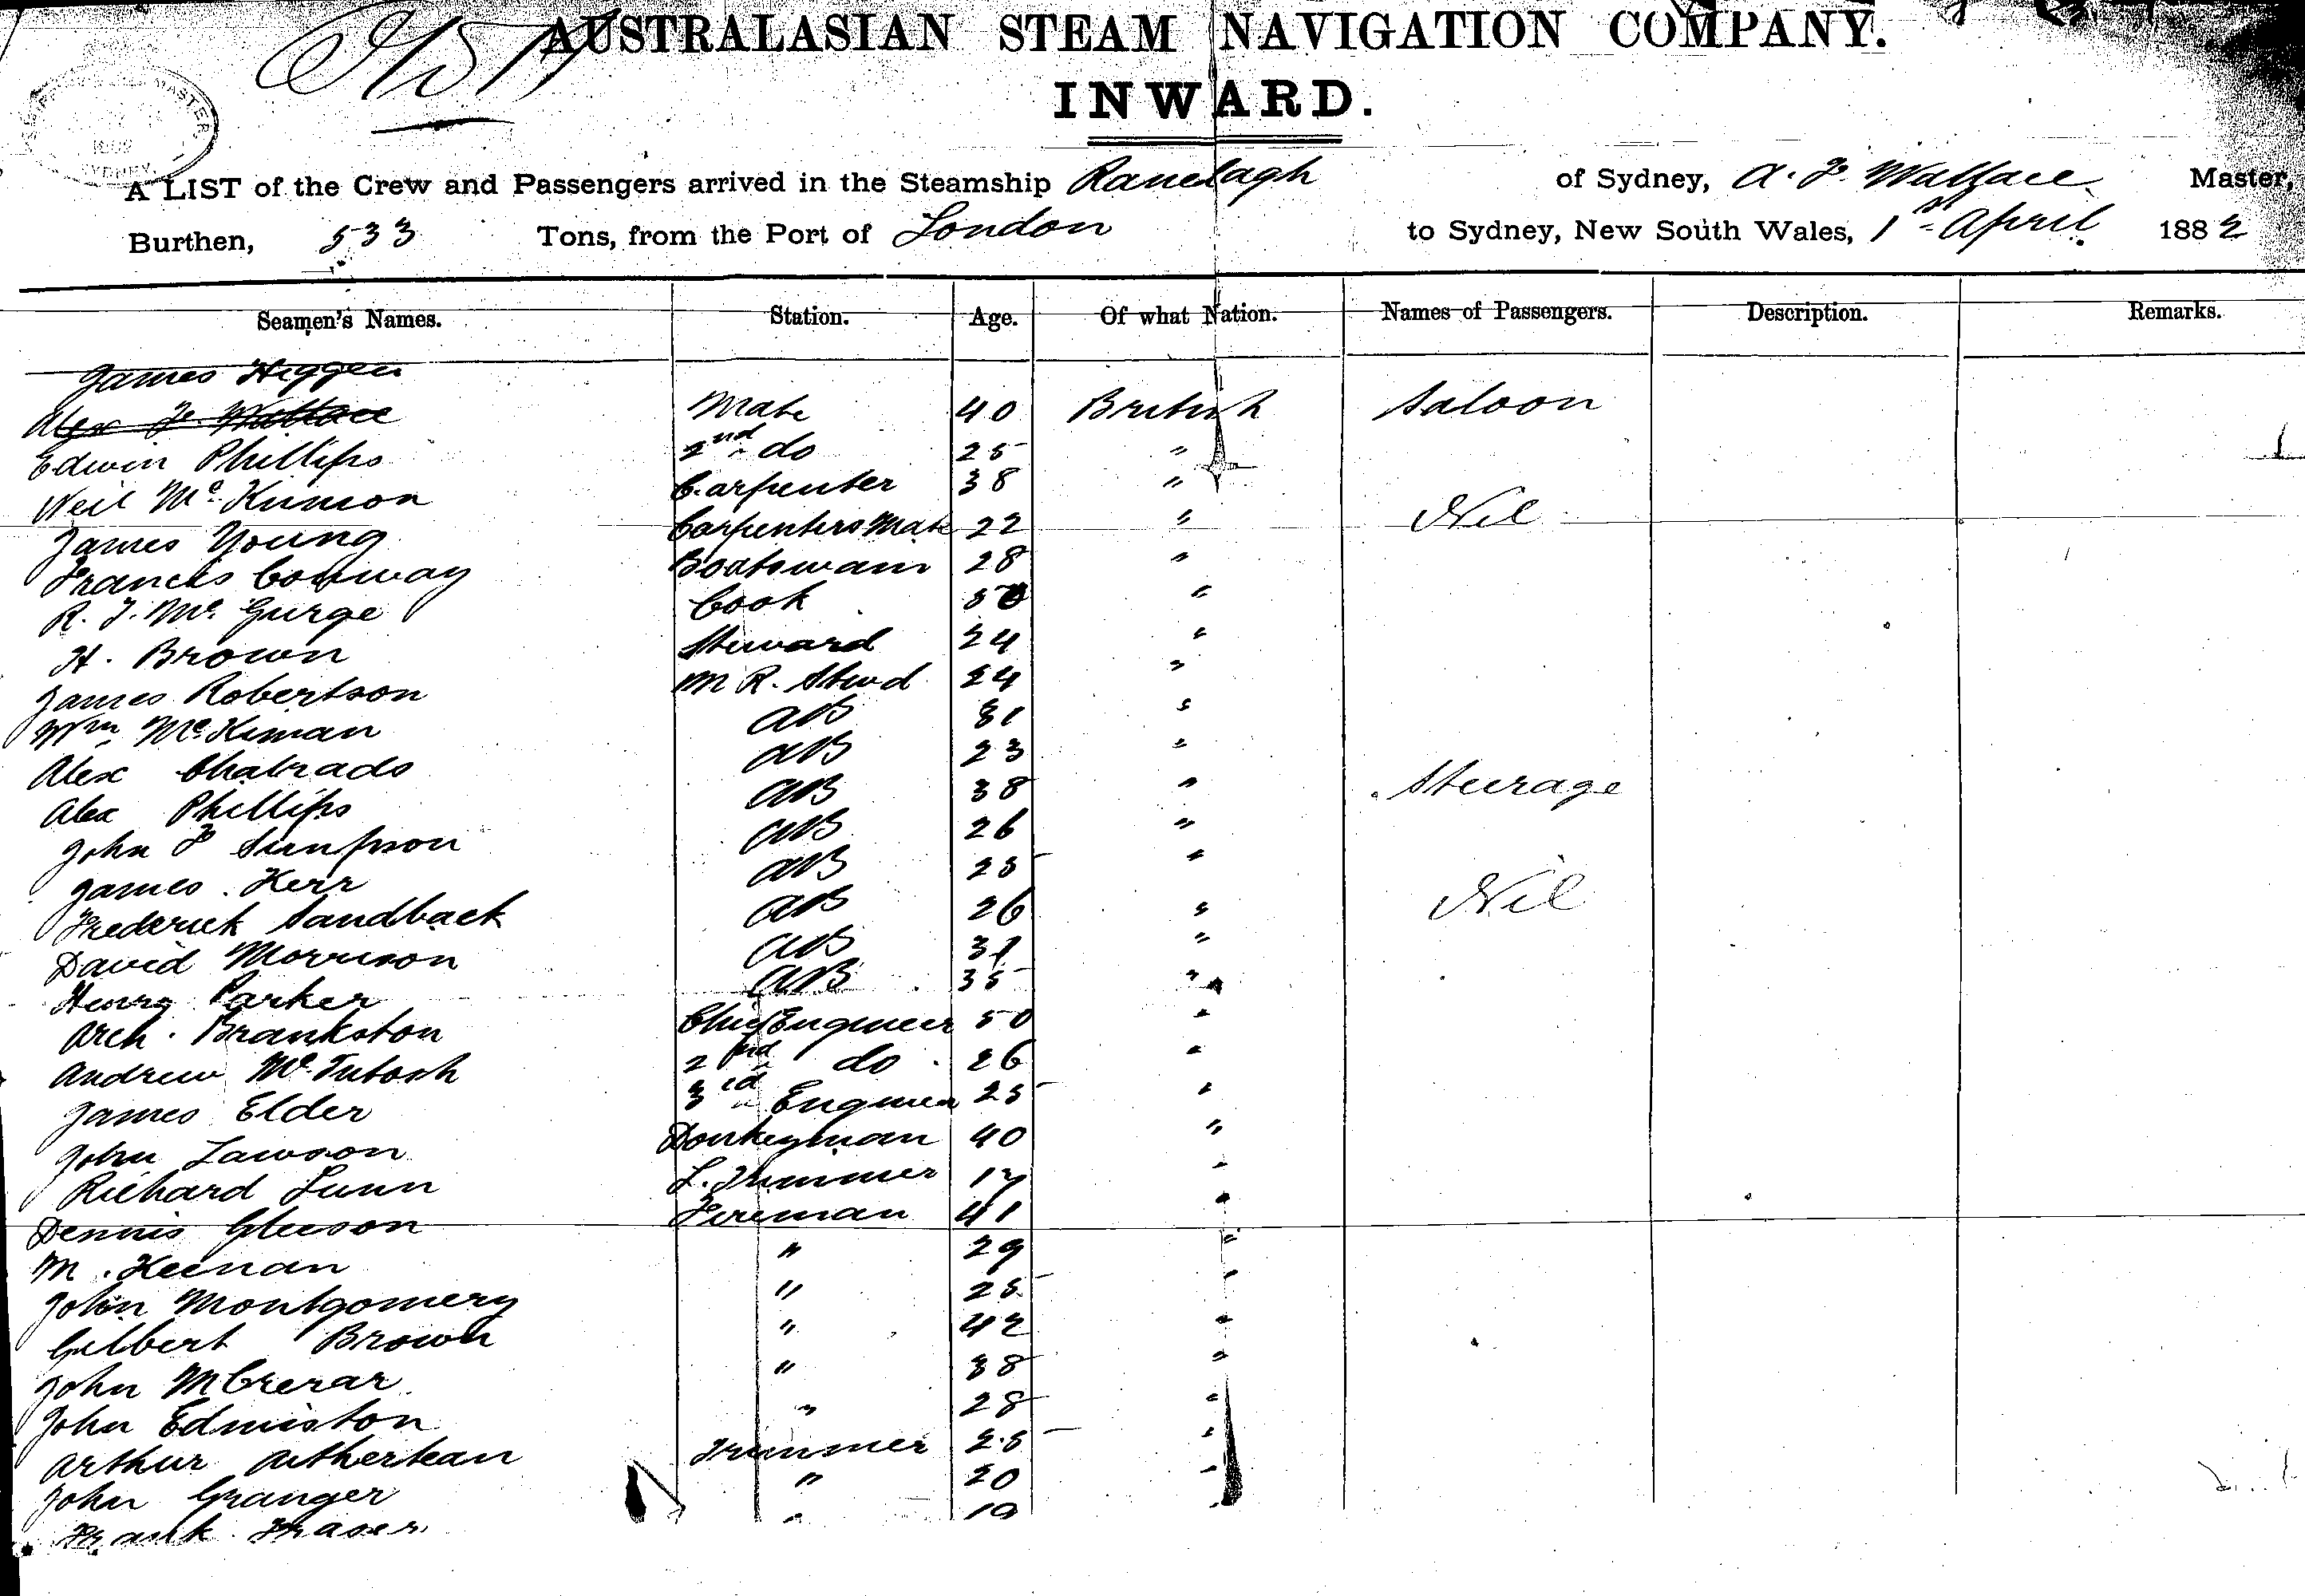 AUSTRALASIAN STEAM NAVIGATION COMPANY.
INWARD.
A LIST of the Crew and Passengers arrived in the Steamship Ranelagh of Sydney, A. F. Wallace Master,
Burthen, 533 Tons, from the Port of London to Sydney, New South Wales, 1st April 1882
Seamen's Names. Station. Age. Of what Nation. Names of Passengers. Description. Remarks.
James Higgen
Alex F. Wallace Mate 40 British Saloon
Edwin Phillips 2nd do 25 "
Neil McKinnon Carpenter 38 "
James Young Carpenters Mate 22 " Nil
Francis Conway Boatswain 28 "
R. J. Mc Gurge Cook 50 "
H. Brown Steward 24 "
James Robertson M R. Stewd 24 "
Wm McKiman AB 31 "
Alex AB 23 "
Alex Phillips AB 38 " Steerage
John F Simpson AB 26 "
James Kerr AB 25 "
Frederick Sandback AB 26 " Nil
David Morrison AB 31 "
Henry Parker AB 35 "
Arch. Brankston Chief Engineer 50 "
Andrew McIntosh 2nd do 26 "
James Elder 3rd Engineer 25 "
John Lawson Donkeyman 40 "
Richard Lunn L. Trimmer 17 "
Dennis Gleeson Fireman 41 "
M. Keenan " 29 "
John Montgomery " 25 "
Gilbert Brown " 42 "
John McCrerar " 38 "
John Edmiston " 28 "
Arthur Trimmer 25 "
John Granger " 20 "
Frank Fraser " 19 "